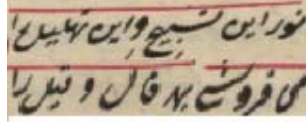 نور این تسبیح و این تهلیل را
می فروشی بهر قال و قیل را